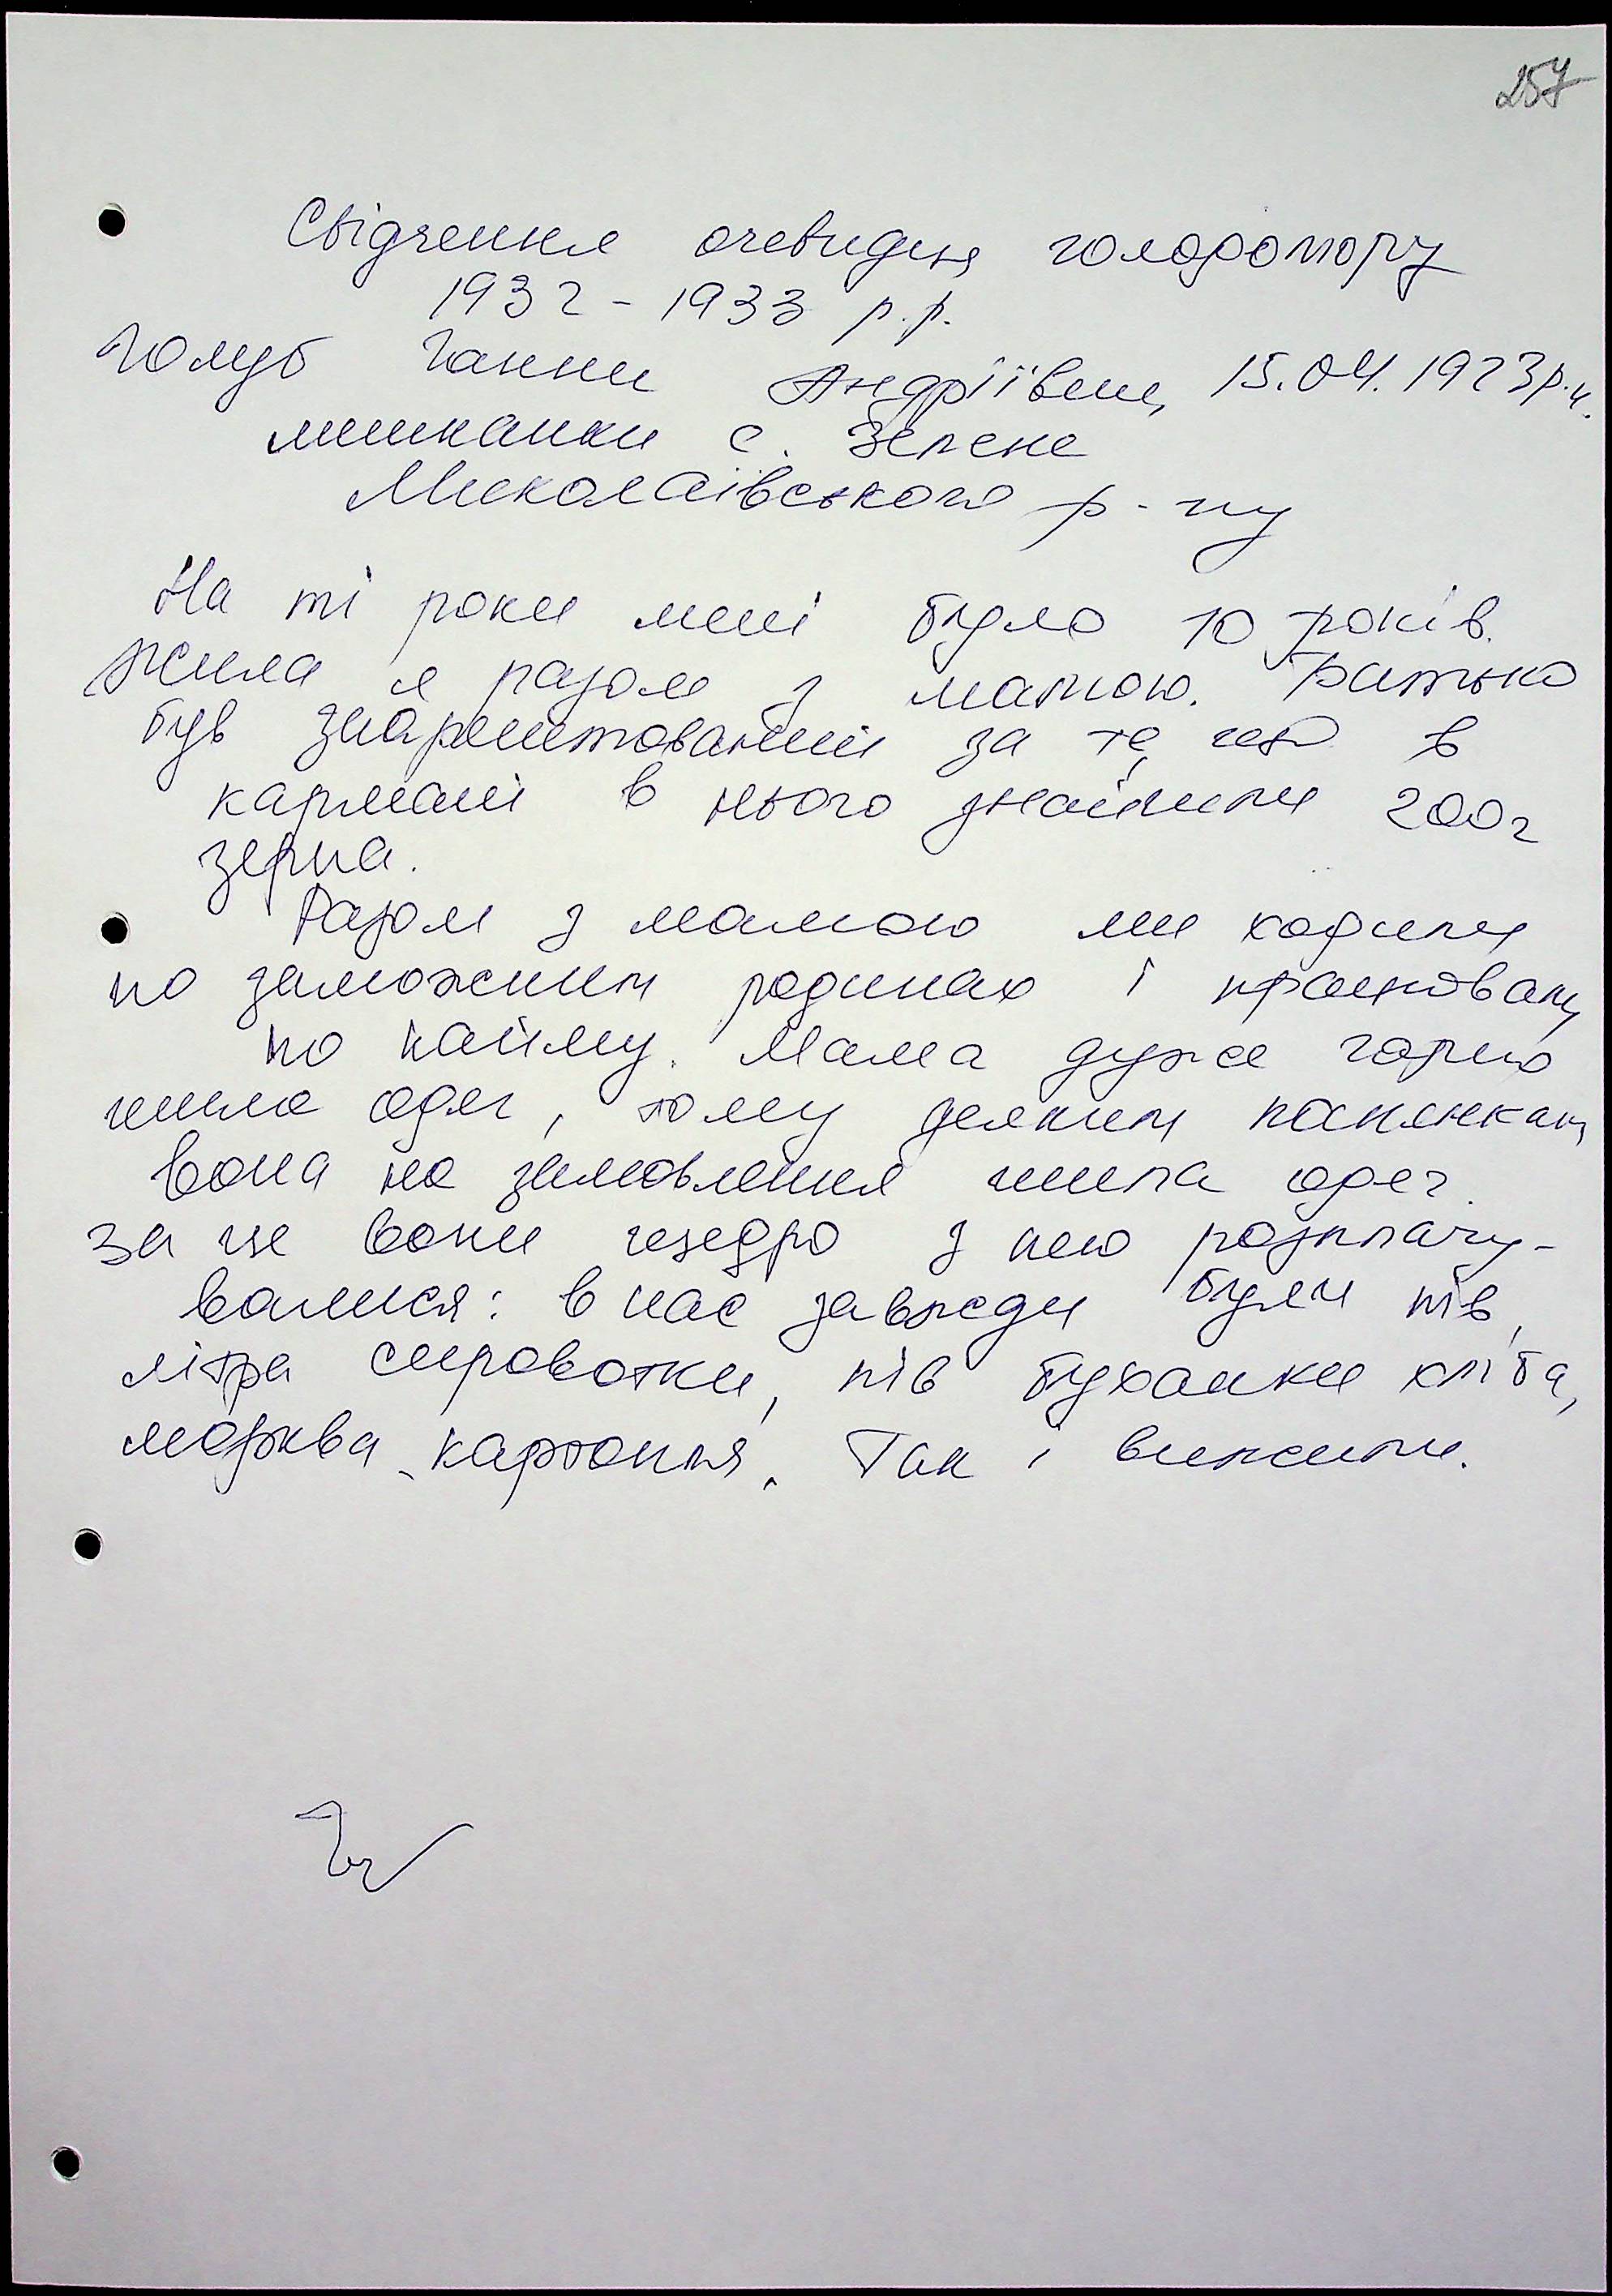 257
Свідчення очевидця голодомору
1932 - 1933 р.р.
Голуб Ганни Андріївни, 15.04.1923р.н.
мешканки с. Зелене
Миколаївського р-ну
На ті роки мені було 10 років.
Жила я разом з мамою. Батько
був заарештований за те, що в
кармані в нього знайшли 200г
зерна.
Разом з мамою ми ходили
по заможним родинах і працювали
по найму. Мама дуже гарно
шила одяг, тому деяким полянкам
вона на замовлення шила одяг.
За це вони щедро з нею розплачу-
валися: в нас завжди були пів
літра сироватки, пів буханки хліба,
морква, картопля. Так і вижили.